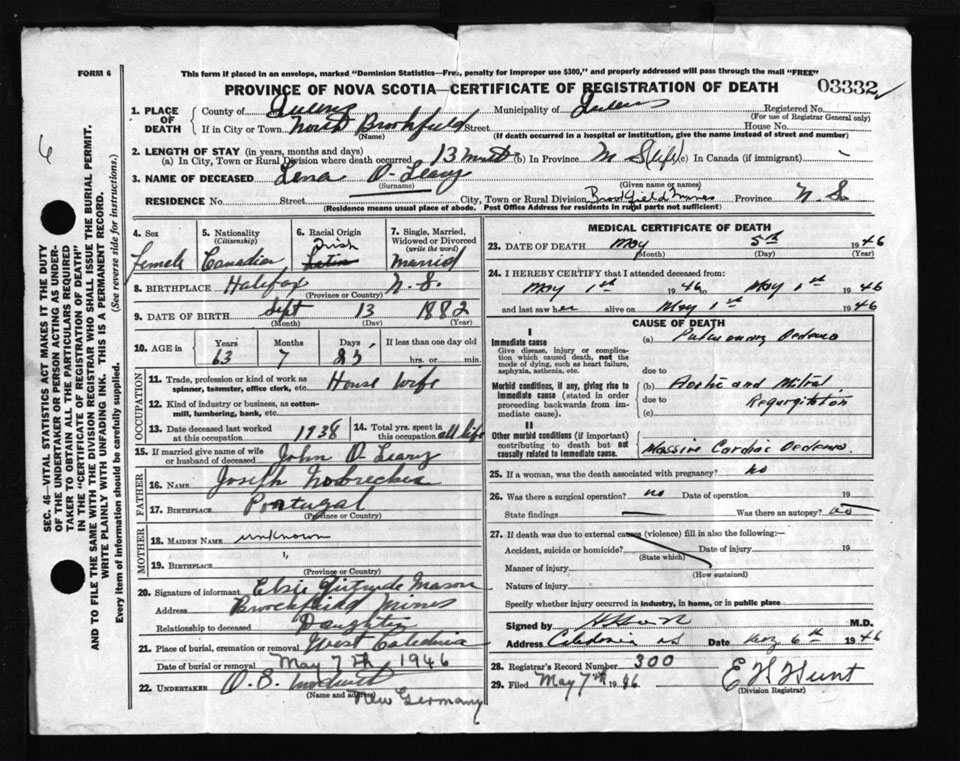 FORM 6
This form if placed in an envelope, marked "Dominion Statistics—Free, penalty for improper use $300," and properly addressed will pass through the mail "FREE"
PROVINCE OF NOVA SCOTIA—CERTIFICATE OF REGISTRATION OF DEATH 03332
6
SEC. 46—VITAL STATISTICS ACT MAKES IT THE DUTY
OF THE UNDERTAKER OR PERSON ACTING AS UNDER-
TAKER TO OBTAIN ALL THE PARTICULARS REQUIRED
IN THE "CERTIFICATE OF REGISTRATION OF DEATH"
AND TO FILE THE SAME WITH THE DIVISION REGISTRAR WHO SHALL ISSUE THE BURIAL PERMIT.
WRITE PLAINLY WITH UNFADING INK. THIS IS A PERMANENT RECORD.
Every item of information should be carefully supplied. (See reverse side for instructions.)
1. PLACE OF DEATH County of Queens Municipality of Queens Registered No.
(For use of Registrar General only)
If in City or Town North Brookfield Street House No.
(Name) (If death occurred in a hospital or institution, give the name instead of street and number)
2. LENGTH OF STAY (in years, months and days)
(a) In City, Town or Rural Division where death occurred 13 (b) In Province N S (life) (c) In Canada (if immigrant) -
3. NAME OF DECEASED Lena O'Leary
(Surname) (Given name or names)
RESIDENCE No. Street City, Town or Rural Division Brookfield Mines Province N. S.
(Residence means usual place of abode. Post Office Address for residents in rural parts not sufficient)
4. Sex 5. Nationality (Citizenship) 6. Racial Origin 7. Single, Married, Widowed or Divorced (write the word)
Irish
Female Canadian Latin Married
8. BIRTHPLACE Halifax N. S.
(Province or Country)
9. DATE OF BIRTH Sept 13 1882
(Month) (Day) (Year)
10. AGE in Years Months Days If less than one day old
63 7 23 hrs. or min.
OCCUPATION
11. Trade, profession or kind of work as spinner, teamster, office clerk, etc. House Wife
12. Kind of industry or business, as cotton-mill, lumbering, bank, etc.
13. Date deceased last worked at this occupation 1938 14. Total yrs. spent in this occupation all life
15. If married give name of wife or husband of deceased John O'Leary
FATHER
16. NAME Joseph
17. BIRTHPLACE Portugal
(Province or Country)
MOTHER
18. MAIDEN NAME unknown
19. BIRTHPLACE "
(Province or Country)
20. Signature of informant Elsie Gertrude Mason
Address Brookfield Mines
Relationship to deceased Daughter
21. Place of burial, cremation or removal West Caledonia
Date of burial or removal May 7th 1946
22. UNDERTAKER O. B.
(Name and address)
New Germany
MEDICAL CERTIFICATE OF DEATH
23. DATE OF DEATH May 5th 1946
(Month) (Day) (Year)
24. I HEREBY CERTIFY that I attended deceased from:
May 1st 1946 to May 1st 1946
and last saw her alive on May 1st 1946
CAUSE OF DEATH
I
Immediate cause
Give disease, injury or complication which caused death, not the mode of dying, such as heart failure, asphyxia, asthenia, etc.
(a) Pulmonary Oedema
due to
Morbid conditions, if any, giving rise to immediate cause (stated in order proceeding backwards from immediate cause).
(b) Aortic and Mitral
due to Regurgitation
(c)
II
Other morbid conditions (if important) contributing to death but not causally related to immediate cause.
Massive Cardiac Oedema.
25. If a woman, was the death associated with pregnancy? No
26. Was there a surgical operation? no Date of operation 19
State findings Was there an autopsy? no
27. If death was due to external causes (violence) fill in also the following:—
Accident, suicide or homicide? Date of injury 19
(State which)
Manner of injury
(How sustained)
Nature of injury
Specify whether injury occurred in industry, in home, or in public place
Signed by M.D.
Address Caledonia NS Date May 6th 1946
28. Registrar's Record Number 300
29. Filed May 7th 1946 E H Hunt
(Division Registrar)